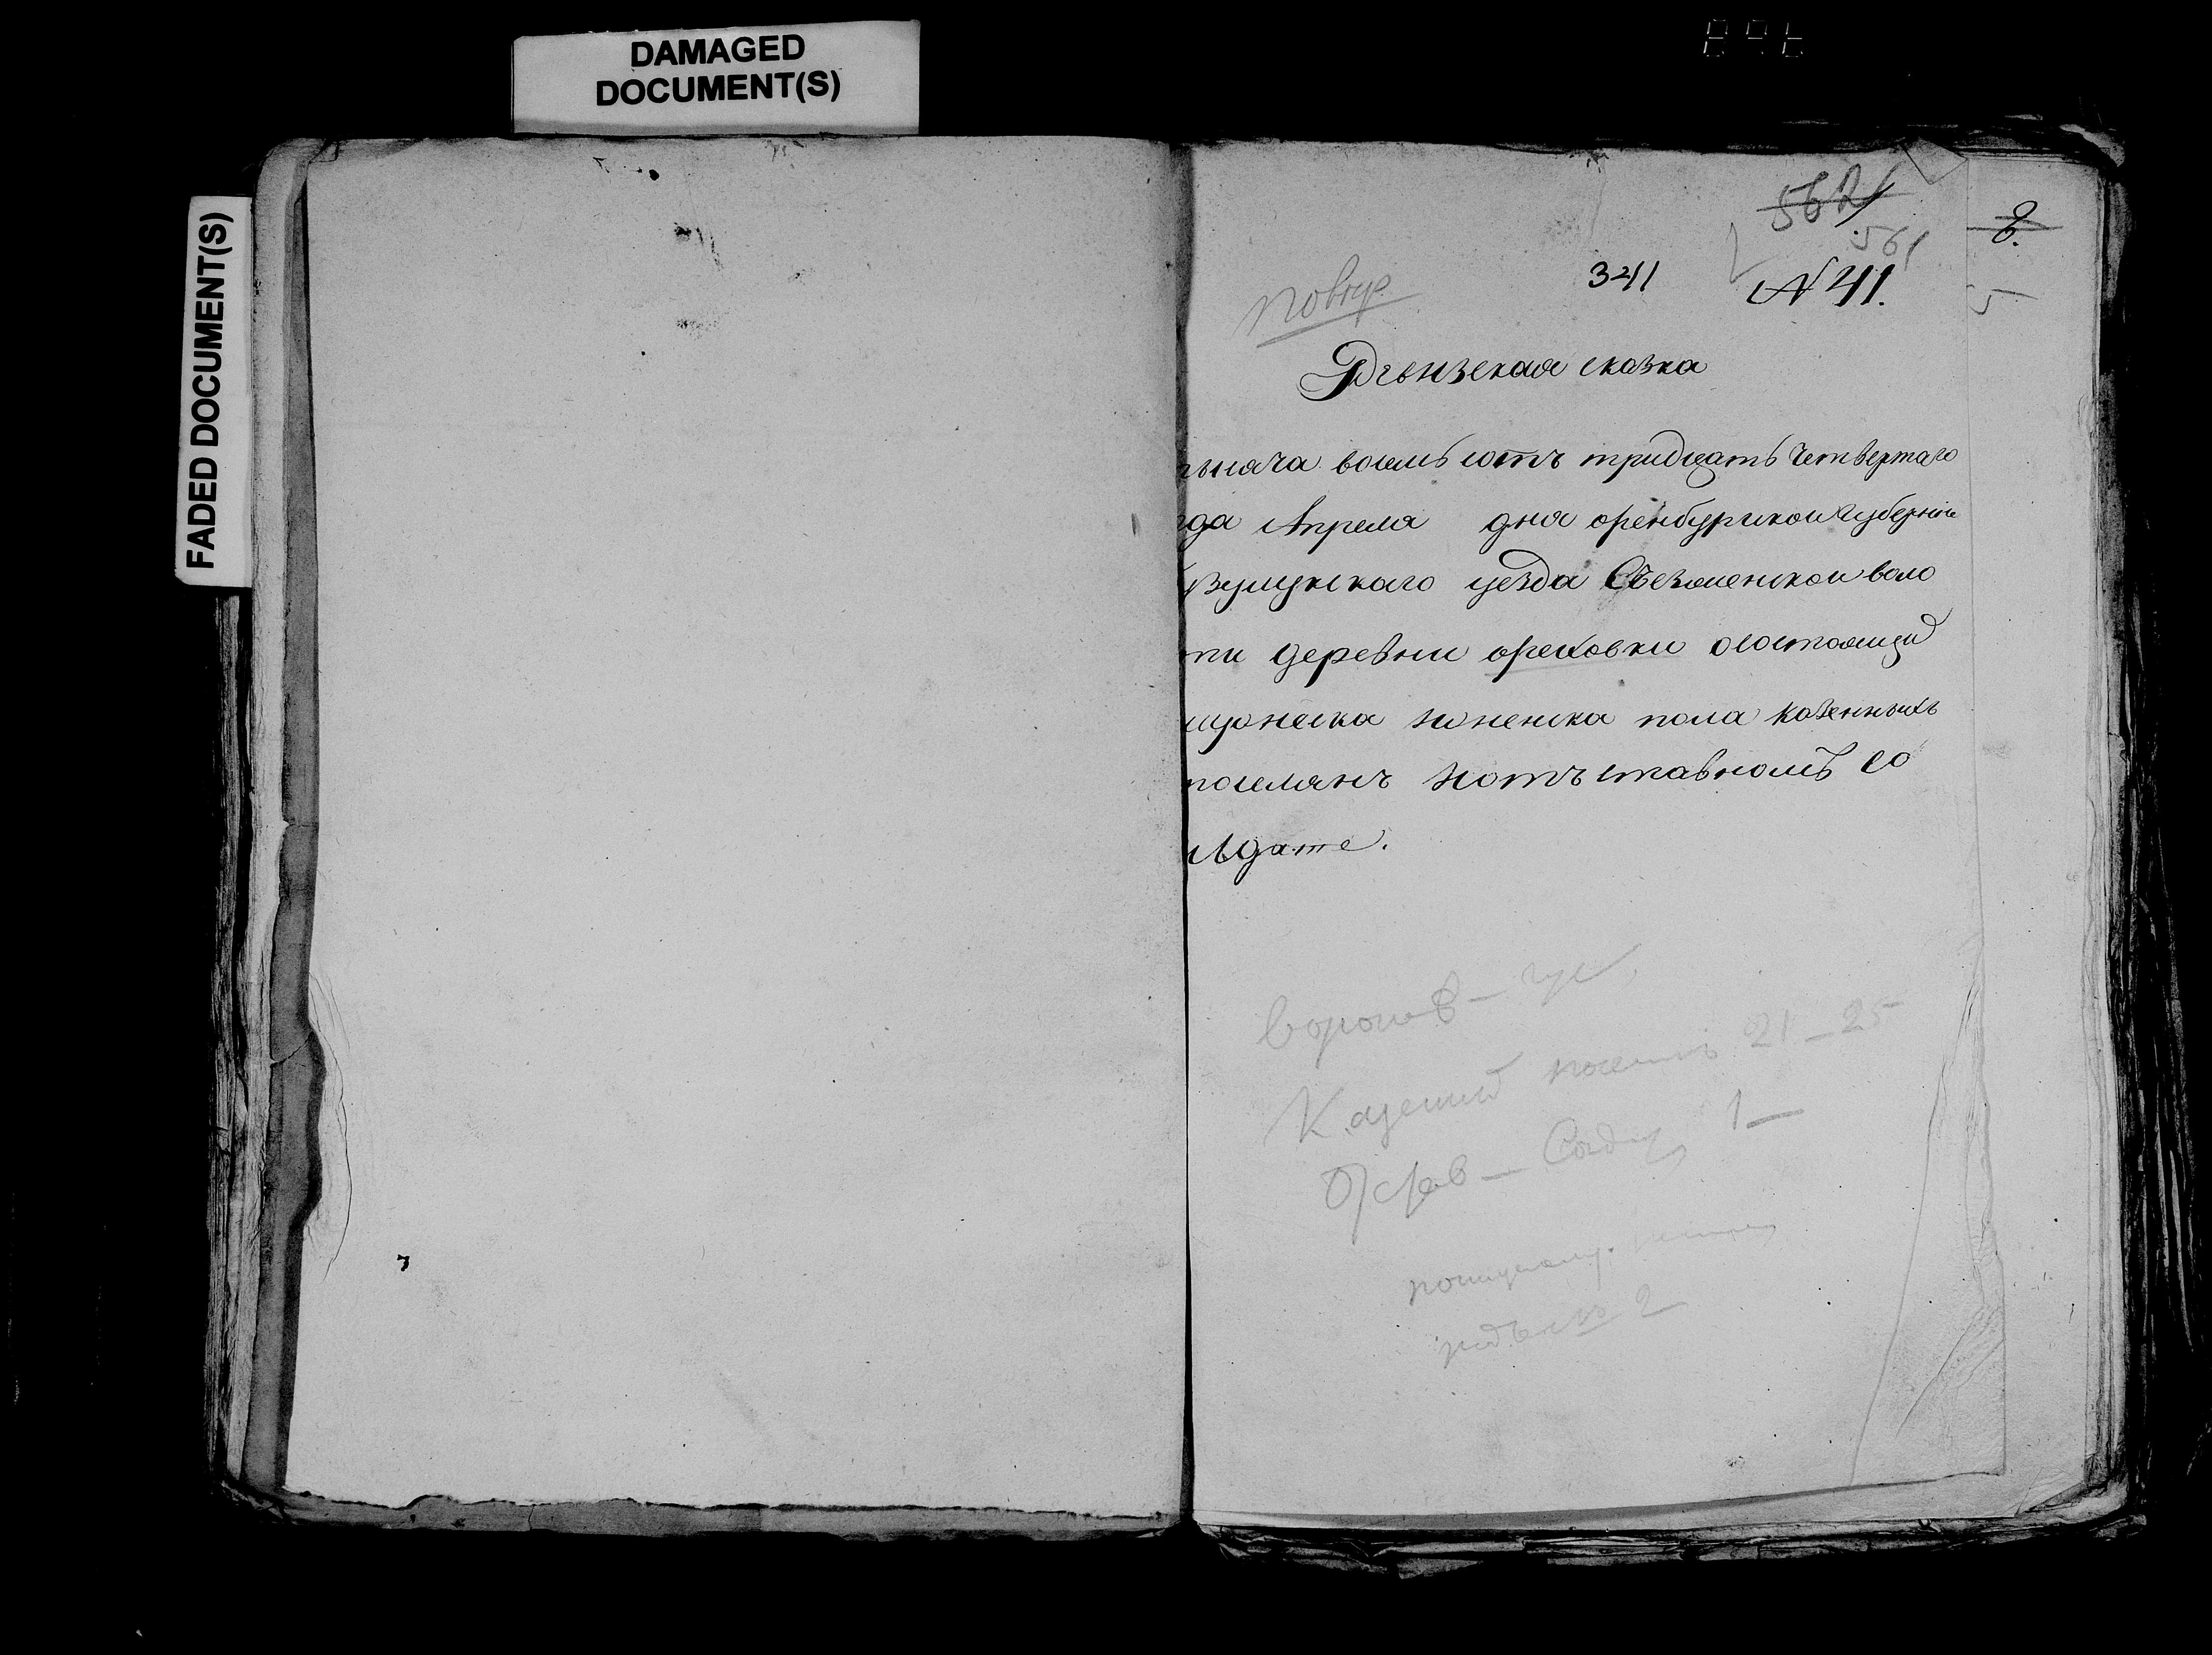 DAMAGED
DOCUMENT(S)
FADED DOCUMENT(S)
562
561
8.
5
повтор
341
N 41.
Ревизская сказка
тысяча восемь сотъ тридцать четвертаго
года Апреля дня оренбургской губернии
бузулукскаго уезда Съезженской воло
сти деревни ореховки осостоящих
мужеска и женска пола казенныхъ
поселянъ и отъставномъ со
лдате.
Воронов –
Казенных поселян 21 – 25
Отстав – Солдат 1 –
N 2